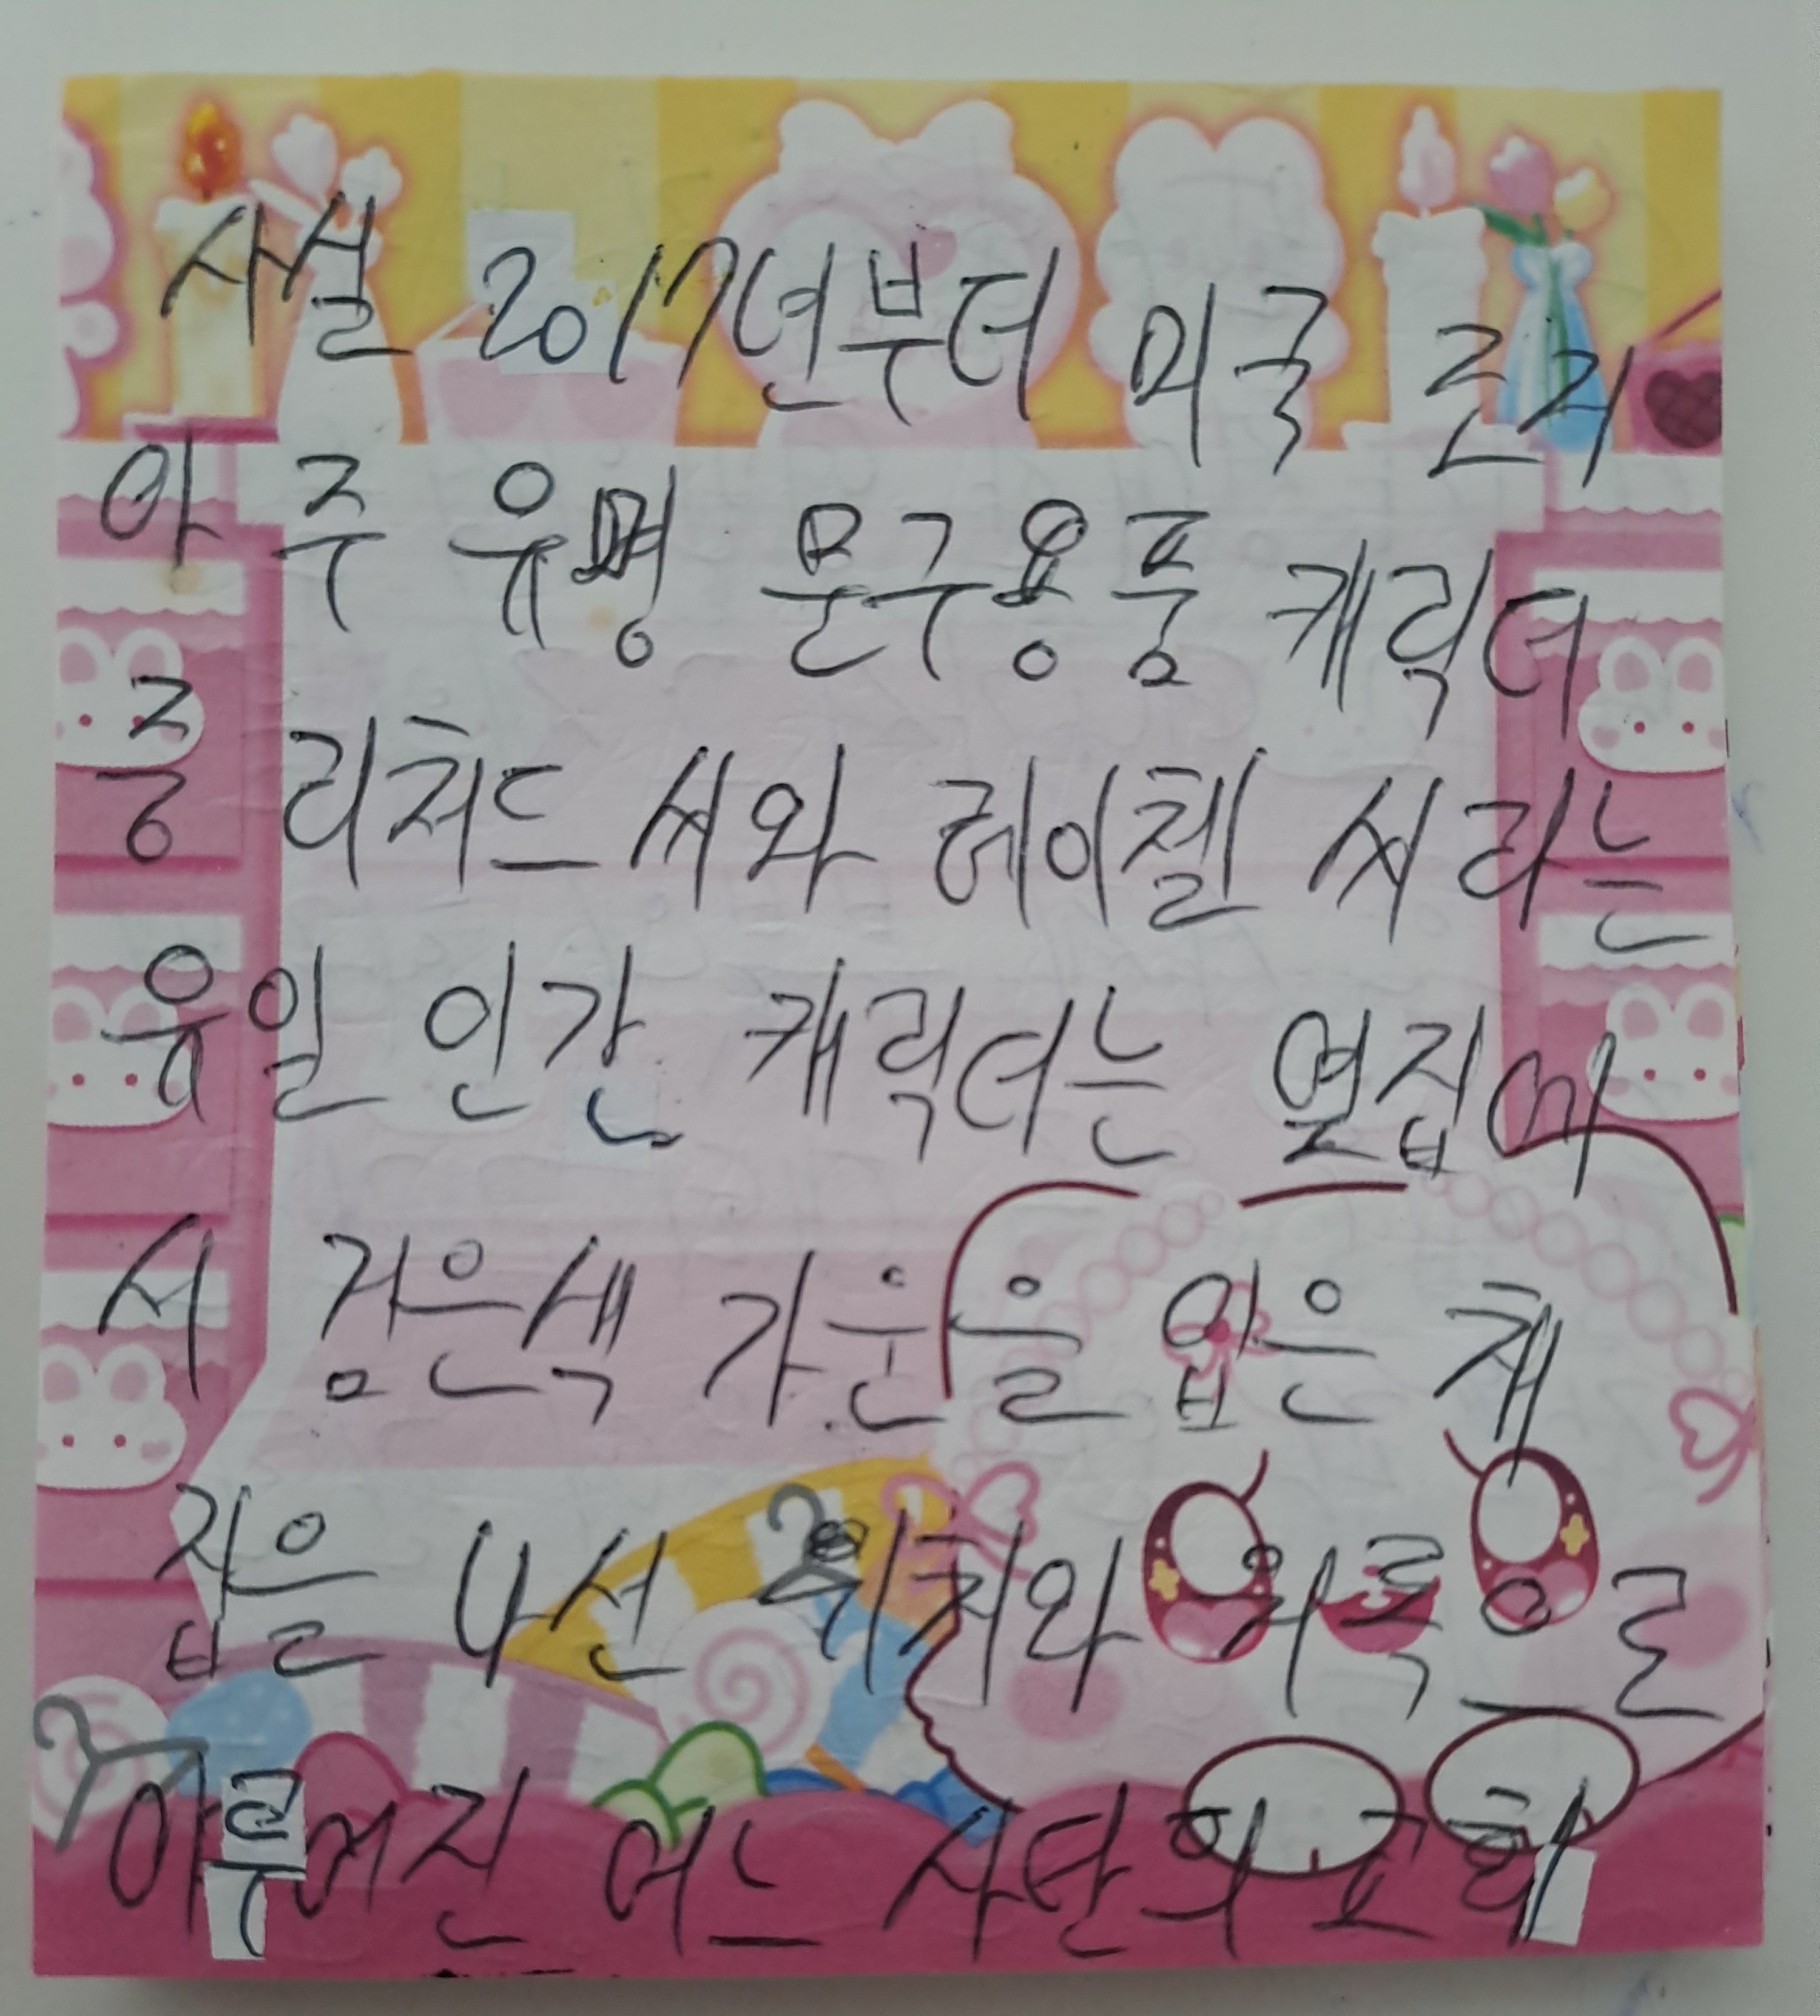 사실 2017년부터 미국 근거
아주 유명 문구용품 캐릭터
중 리처드 씨와 레이첼 씨라는
유일 인간 캐릭터는 옆집에
서 검은색 가운을 입은 채
집을 나선 위치와 가족으로
이루어진 어느 사단의